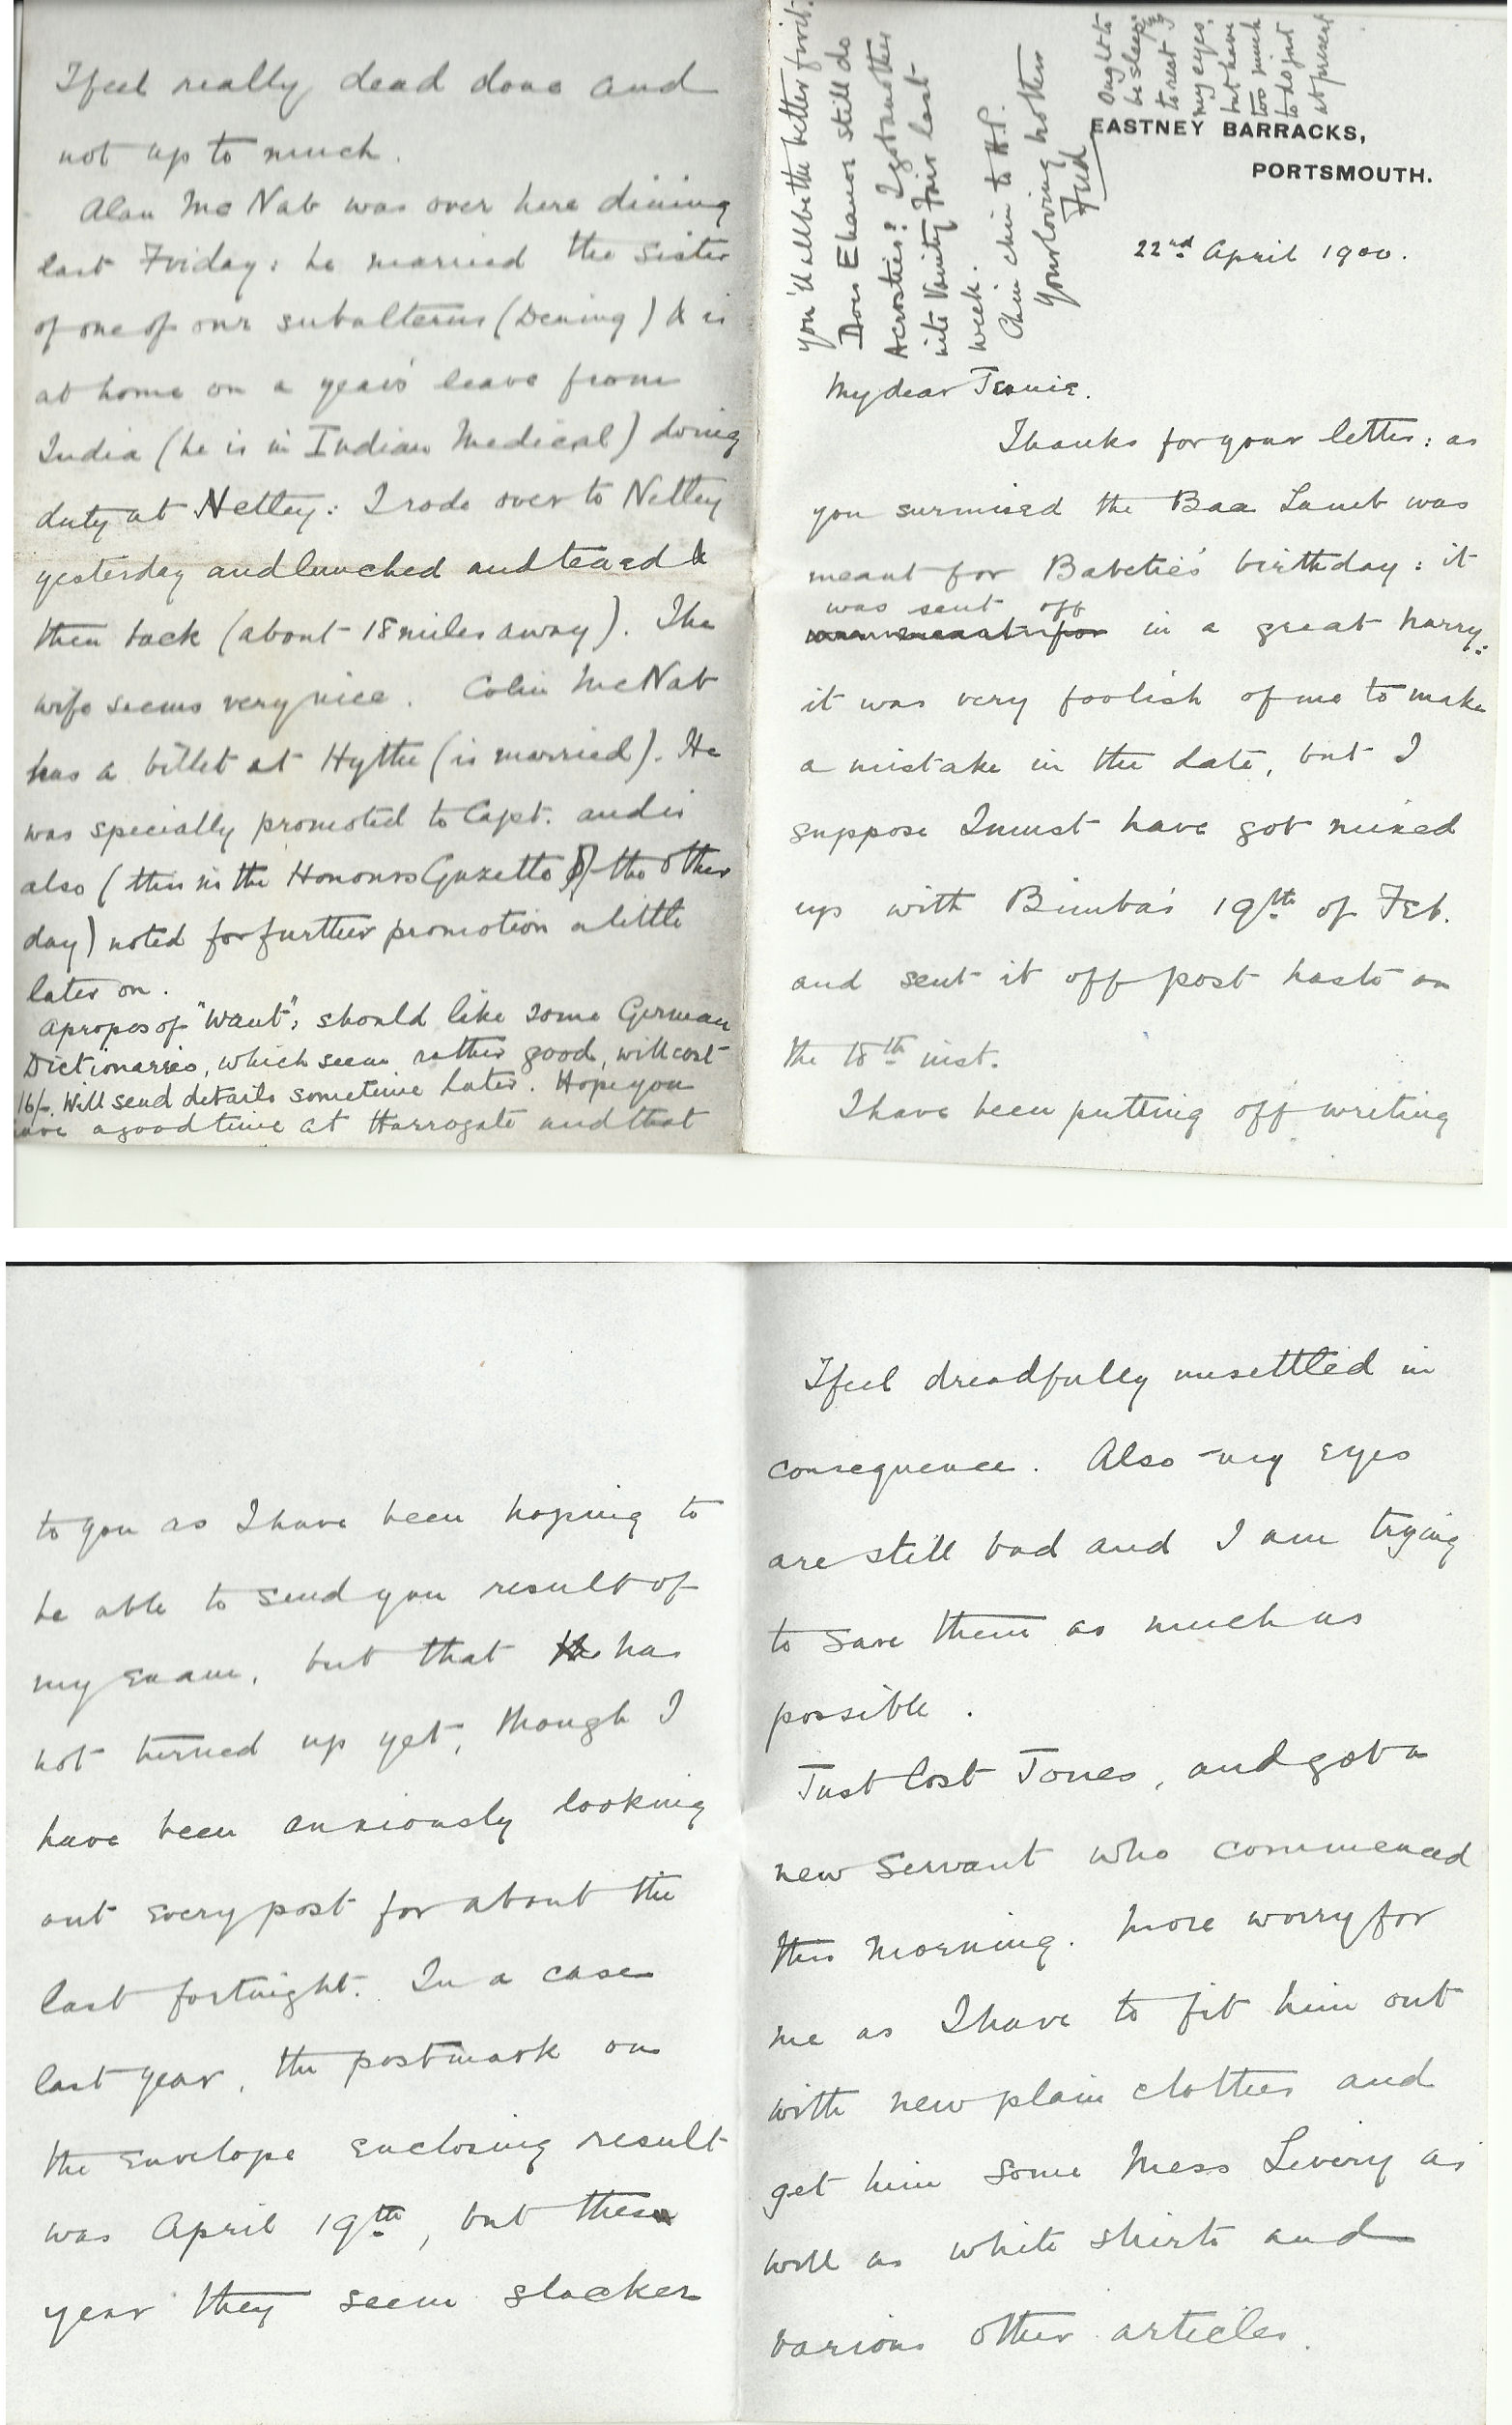 EASTNEY BARRACKS,
PORTSMOUTH.
22nd April 1900.
My dear Jeanie.
Thanks for your letter: as
you surmised the Baa Lamb was
meant for Babetie's birthday: it
was sent off
in a great hurry:
it was very foolish of me to make
a mistake in the date, but I
suppose I must have got mixed
up with Bimba's 19th of Feb.
and sent it off post haste on
the 18th inst.
I have been putting off writing
to you as I have been hoping to
be able to send you result of
my exam, but that has
not turned up yet, though I
have been anxiously looking
out every post for about the
last fortnight. In a case
last year, the postmark on
the envelope enclosing result
was April 19th, but this
year they seem slacker
I feel dreadfully unsettled in
consequence. Also my eyes
are still bad and I am trying
to save them as much as
possible.
Just lost Jones, and got a
new servant who commenced
this morning. More worry for
me as I have to fit him out
with new plain clothes and
get him some Mess Livery as
well as white shirts and
various other articles.
I feel really dead done and
not up to much.
Alan McNab was over here dining
last Friday: he married the sister
of one of our subalterns (Dening) & is
at home on a year's leave from
India (he is in Indian Medical) doing
duty at Netley: I rode over to Netley
yesterday and lunched and teaed &
then back (about 18 miles away). The
wife seems very nice. Colin McNab
has a billet at Hythe (is married). He
was specially promoted to Capt. and is
also (this in the Honours Gazette of the other
day) noted for further promotion a little
later on.
Apropos of "Want", should like some German
Dictionaries, which seem rather good, will cost
16/-. Will send details sometime later. Hope you
have a good time at Harrogate and that
you'll all be the better for it.
Does Eleanor still do
Acrostics? I got another
into Vanity Fair last
week.
Chin chin to H.P.
Your loving brother
Fred
Ought to
be sleep:
to rest
my eyes,
but have
too much
to do just
at present